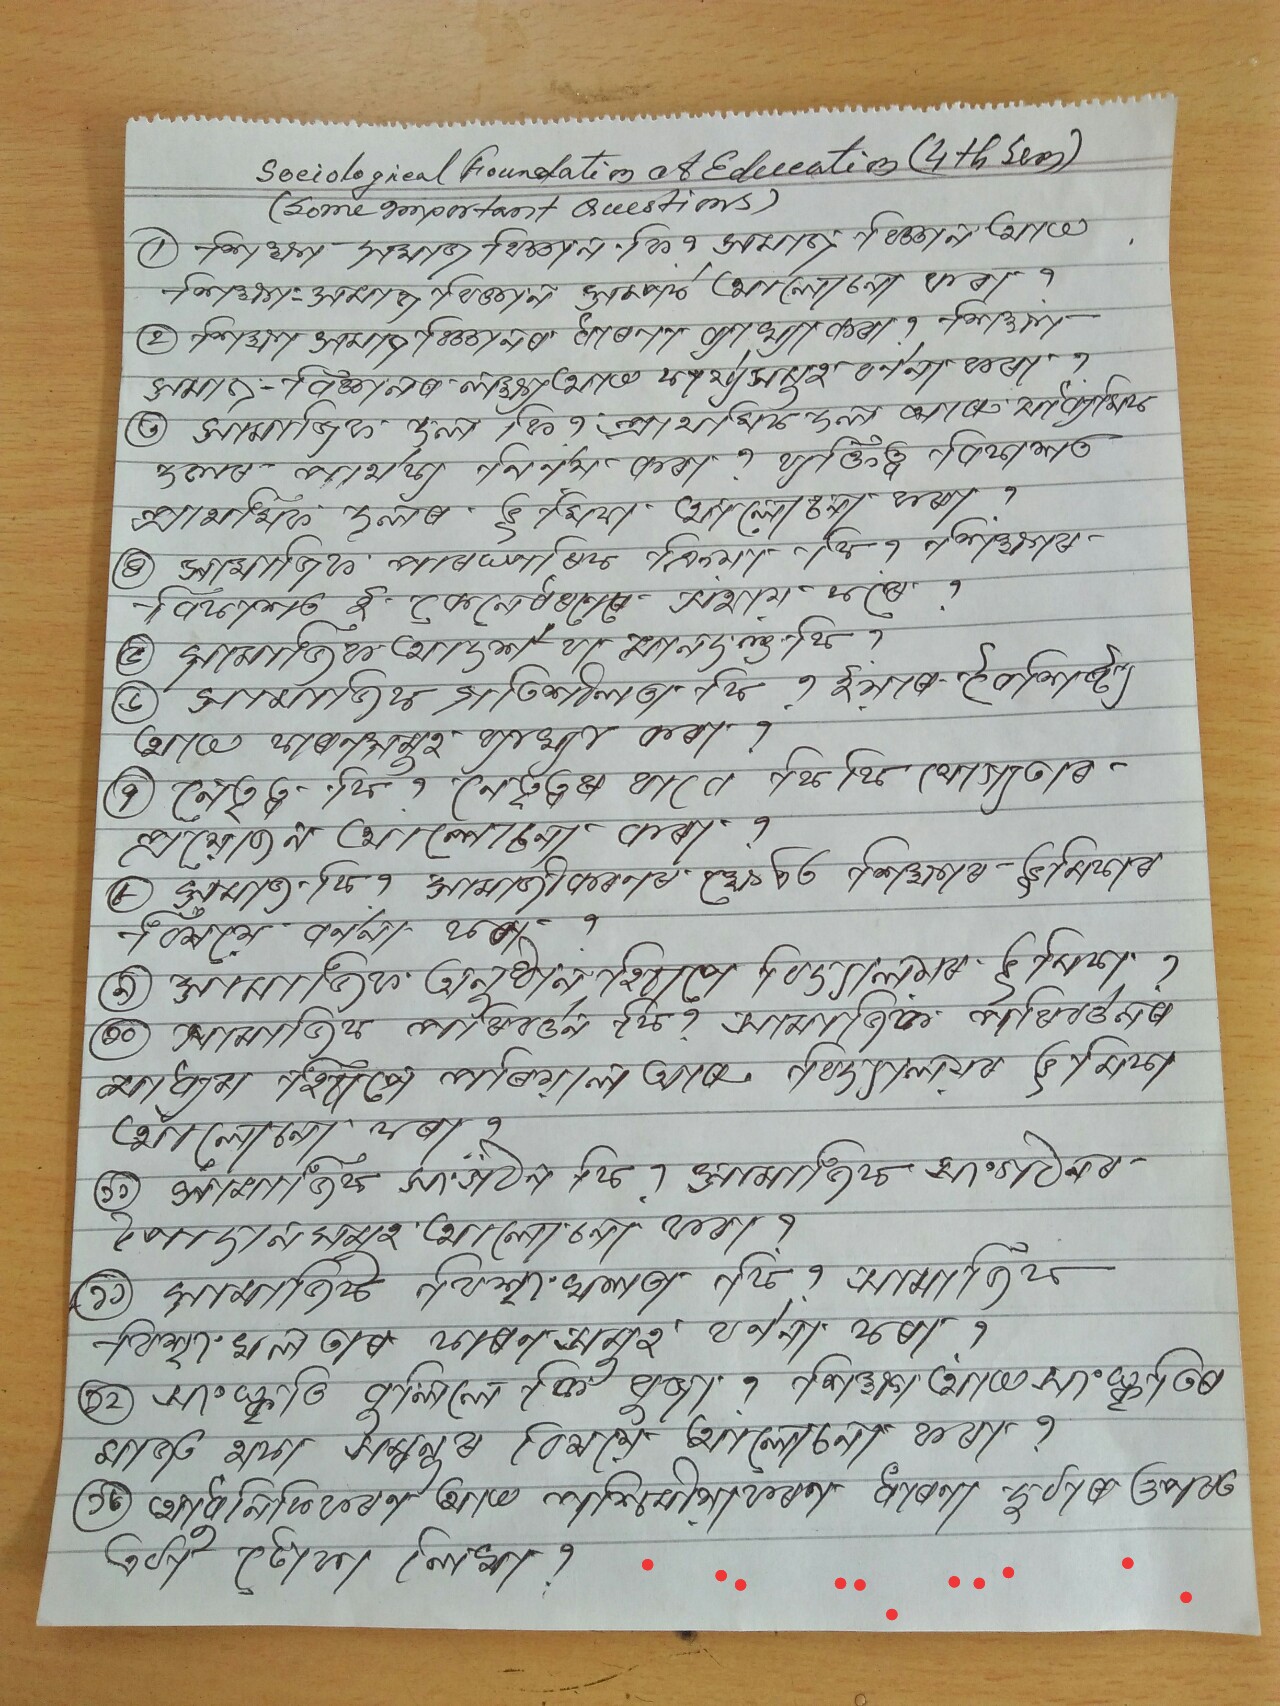 Sociological Foundation of Education (4th Sem)
(Some important Questions)
১ শিক্ষা সমাজ বিজ্ঞান কি? সমাজ বিজ্ঞান আৰু
শিক্ষা-সমাজ বিজ্ঞান সম্পৰ্ক আলোচনা কৰা?
২ শিক্ষা সমাজ বিজ্ঞানৰ ধাৰণা ব্যাখ্যা কৰা? শিক্ষা-
সমাজ-বিজ্ঞানৰ লক্ষ্য আৰু কাৰ্য্যসমূহ বৰ্ণনা কৰা?
৩ সামাজিক দল কি? প্ৰাথমিক দল আৰু মাধ্যমিক
দলৰ পাৰ্থক্য নিৰ্ণয় কৰা? ব্যক্তিত্ব বিকাশত
প্ৰাথমিক দলৰ ভূমিকা আলোচনা কৰা?
৪ সামাজিক পাৰস্পৰিক ক্ৰিয়া কি? শিক্ষাৰ-
বিকাশত ই কেনেধৰণেৰে সহায় কৰে?
৫ সামাজিক আদৰ্শ বা মানদণ্ড কি?
৬ সামাজিক গতিশীলতা কি? ইয়াৰ বৈশিষ্ট্য
আৰু কাৰণসমূহ ব্যাখ্যা কৰা?
৭ নেতৃত্ব কি? নেতৃত্বৰ বাবে কি কি যোগ্যতাৰ-
প্ৰয়োজন আলোচনা কৰা?
৮ সমাজ কি? সামাজীকৰণৰ ক্ষেত্ৰত শিক্ষাৰ ভূমিকাৰ
বিষয়ে বৰ্ণনা কৰা?
৯ সামাজিক অনুষ্ঠান হিচাপে বিদ্যালয়ৰ ভূমিকা?
১০ সামাজিক পৰিবৰ্তন কি? সামাজিক পৰিবৰ্তনৰ
মাধ্যম হিচাপে পৰিয়াল আৰু বিদ্যালয়ৰ ভূমিকা
আলোচনা কৰা?
১১ সামাজিক সংগঠন কি? সামাজিক সংগঠনৰ-
উপাদানসমূহ আলোচনা কৰা?
১১ সামাজিক বিশৃংখলতা কি? সামাজিক
বিশৃংখলতাৰ কাৰণসমূহ বৰ্ণনা কৰা?
১২ সংস্কৃতি বুলিলে কি বুজা? শিক্ষা আৰু সংস্কৃতিৰ
মাজত থকা সম্বন্ধৰ বিষয়ে আলোচনা কৰা?
আধুনিকিকৰণ আৰু পশ্চিমীয়াকৰণ ধাৰণা দুটাৰ ওপৰত
চমু টোকা লিখা?